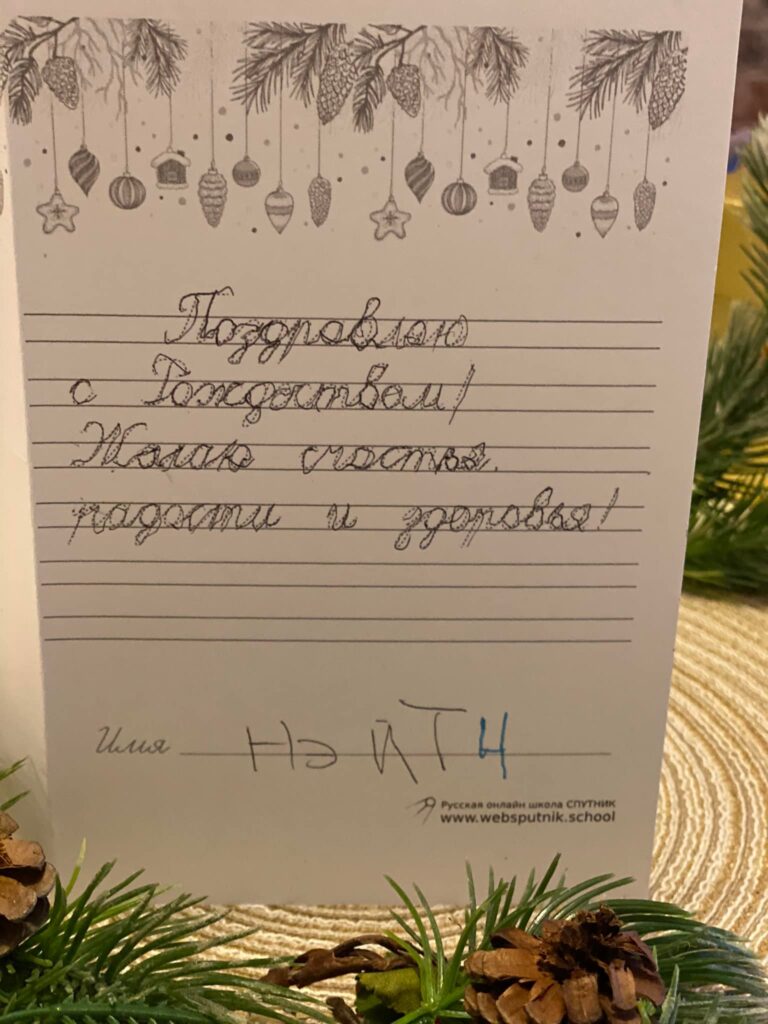 Поздравляю
с Рождеством!
Желаю счастья,
радости и здоровья!
Имя НэйТЧ
Русская онлайн школа СПУТНИК
www.websputnik.school